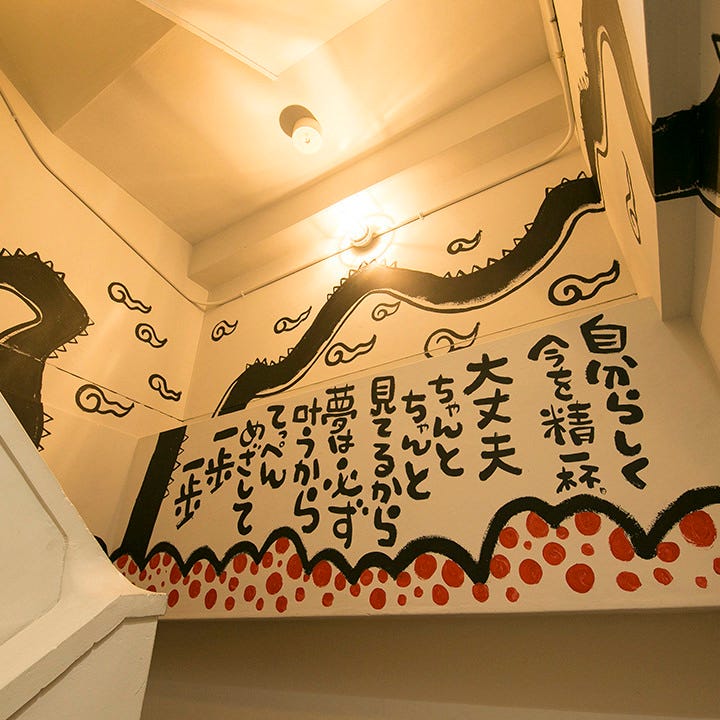 自分らしく
今を精一杯。
大丈夫
ちゃんと
ちゃんと
見てるから
夢は必ず
叶うから
てっぺん
めざして
一歩
一歩